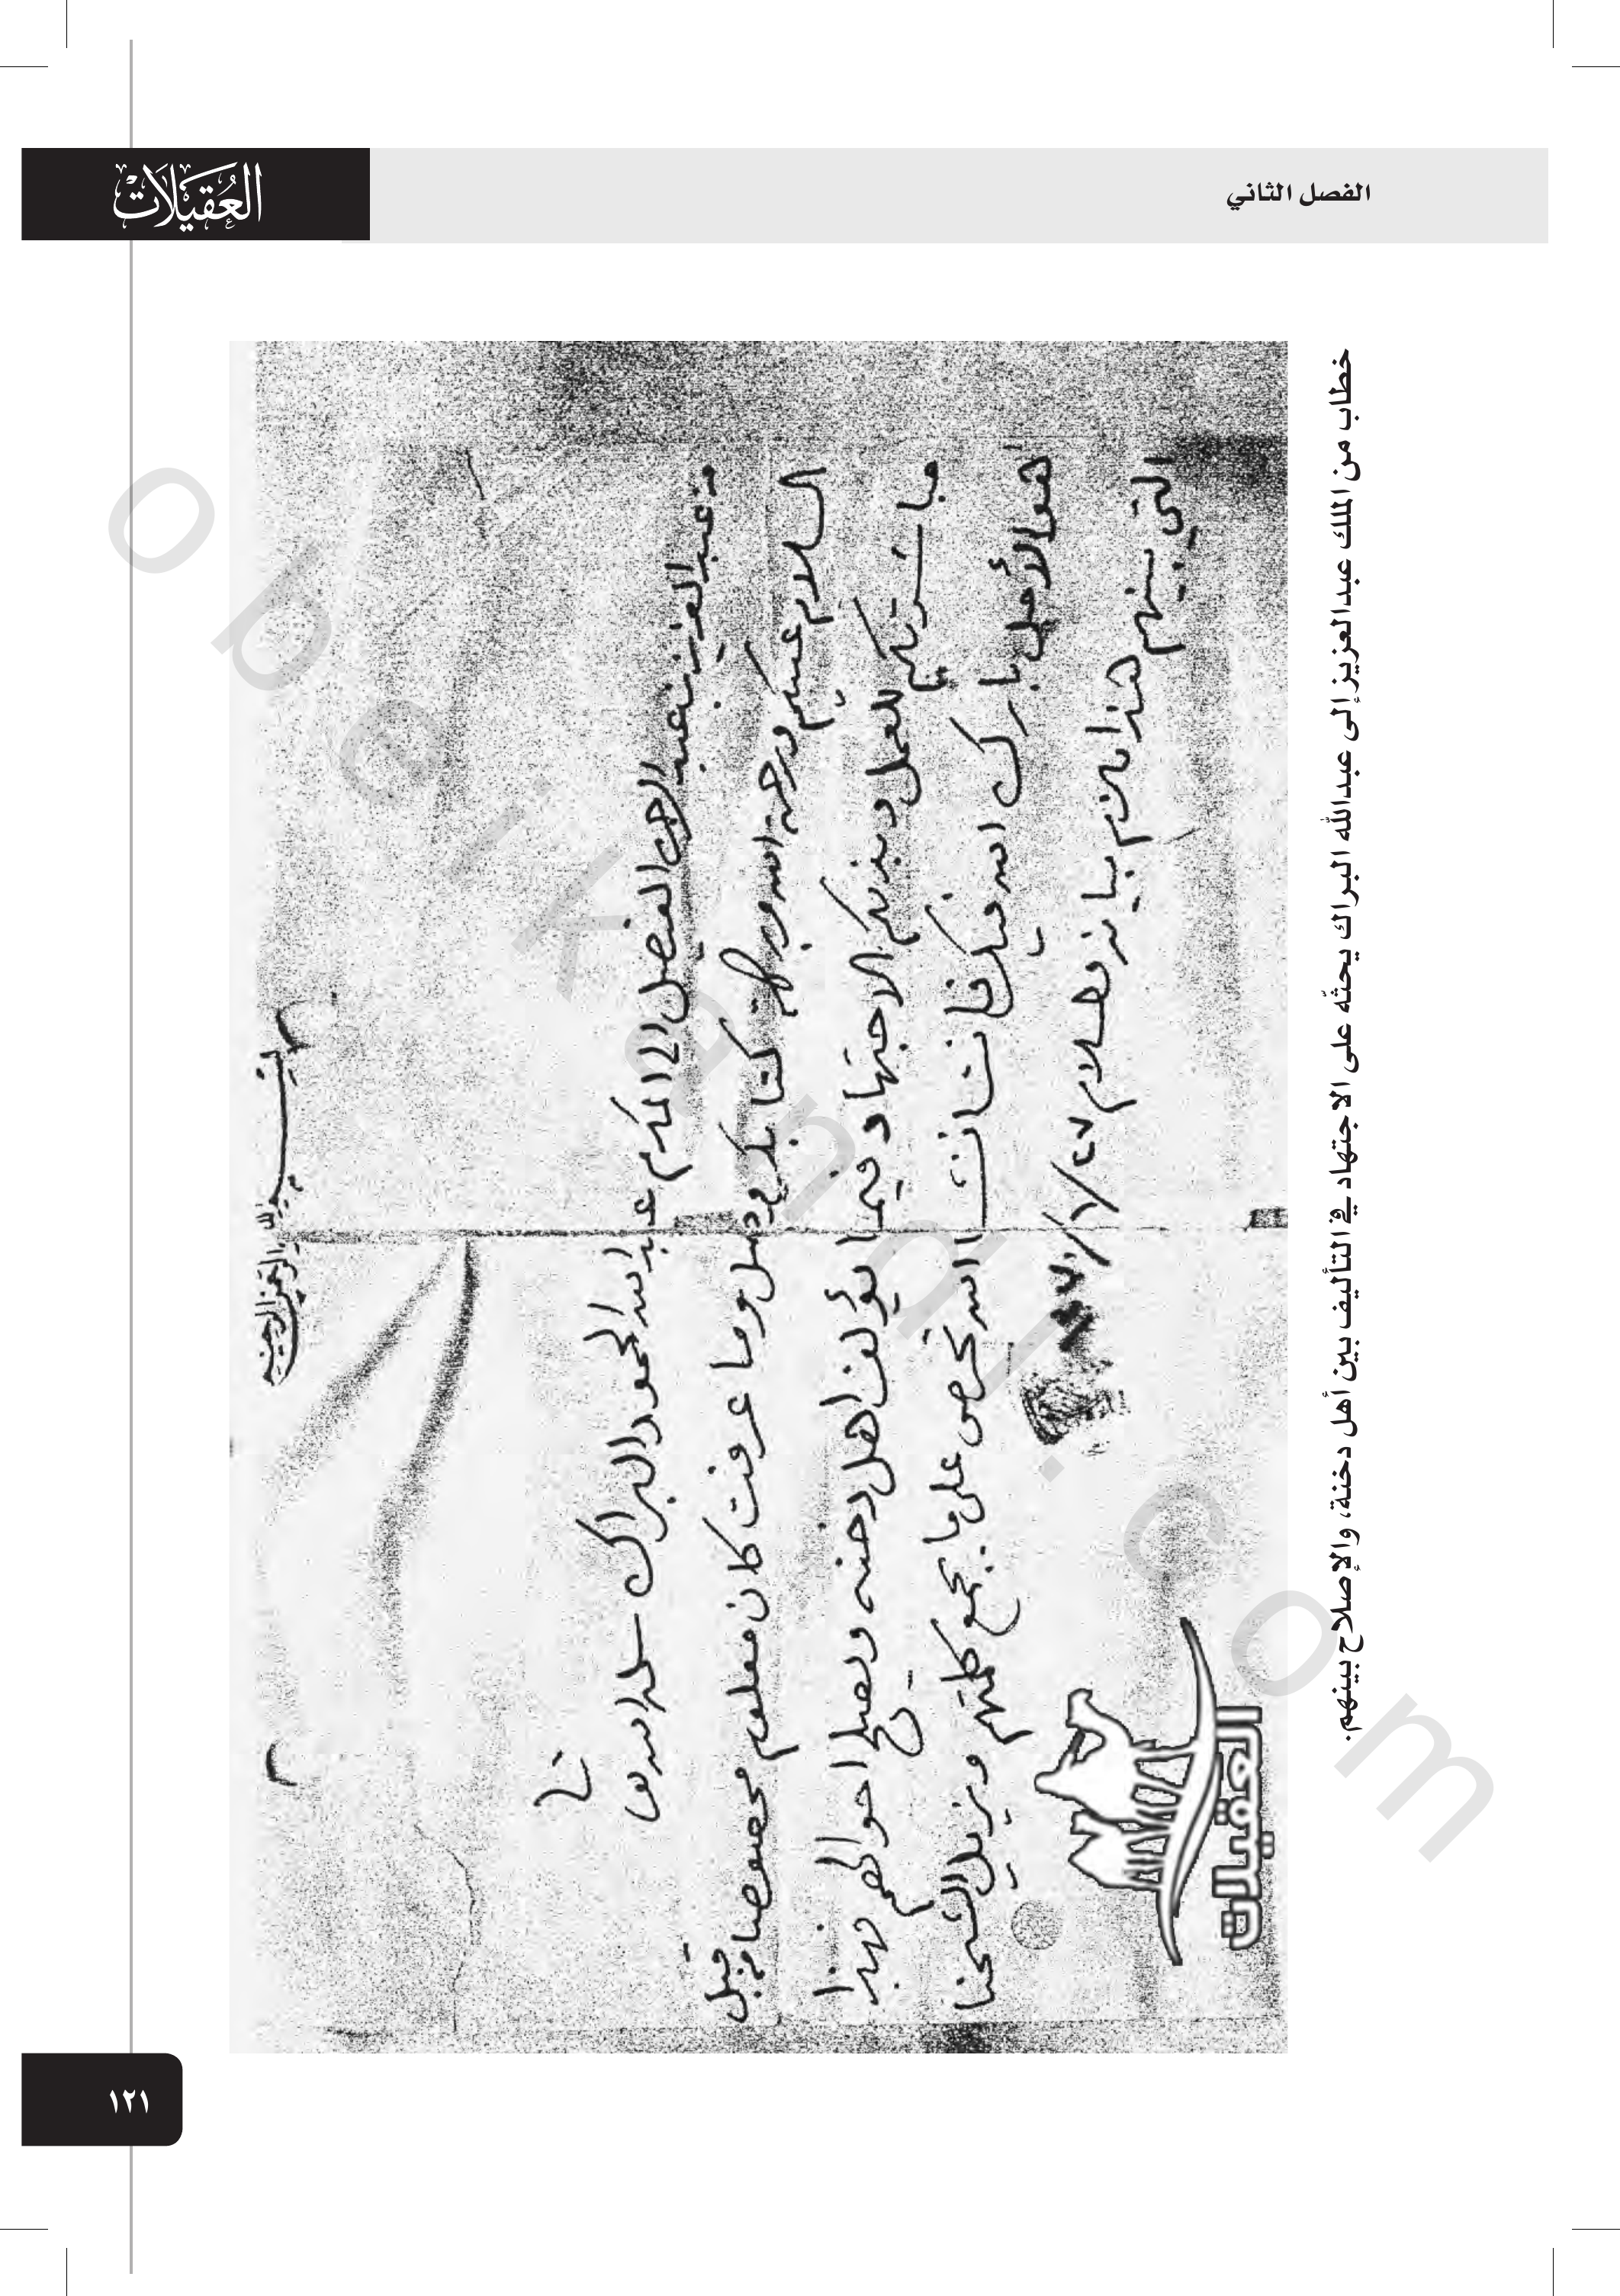 الفصل الثاني
العُقَيلَات
بسم الله الرحمن الرحيم
من عبد العزيز بن عبد الرحمن الفيصل الى المكرم عبد الله المحمد البراك سلمه الله
السلام عليكم ورحمة الله وبركاته كتابكم وصل وما عرفت كان معلوم مخصوصا من قبل
مباشرتكم للعمل وبذلكم الاجتهاد فيما يؤلف اهل دخنه ويصلح احوالهم فهذا
هو الأمل بارك الله فيكم فانت ان شا الله تحرص على ما يجمع كلمتهم ويزيل الشحنا
التي بينهم هذا ما لزم بيانه والسلام
العقيلات
خطاب من الملك عبدالعزيز إلى عبدالله البراك يحثّه على الاجتهاد في التأليف بين أهل دخنة، والإصلاح بينهم.
١٢١
obeikandl.com